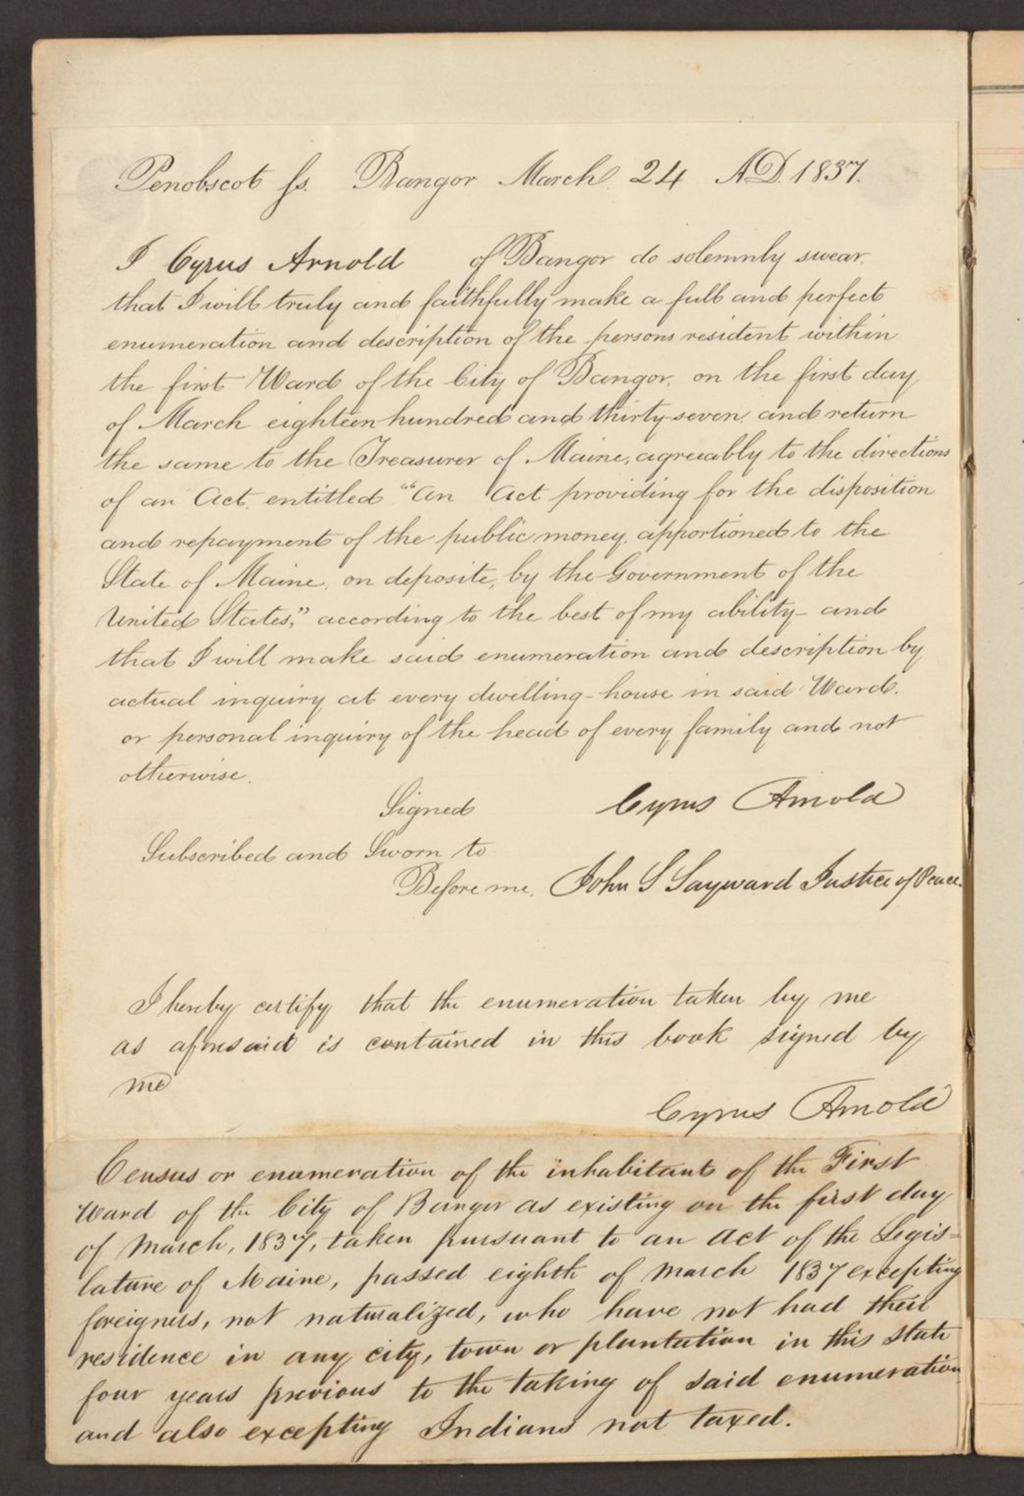 Penobscot ss. Bangor March 24 A.D. 1837.
I Cyrus Arnold of Bangor do solemnly swear,
that I will truly and faithfully make a full and perfect
enumeration and description of the persons resident within
the first Ward of the City of Bangor, on the first day
of March eighteen hundred and thirty-seven, and return
the same to the Treasurer of Maine, agreeably to the directions
of an Act, entitled "An Act providing for the disposition
and repayment of the public money, apportioned to the
State of Maine, on deposite, by the Government of the
United States," according to the best of my ability - and
that I will make said enumeration and description by
actual inquiry at every dwelling-house in said Ward,
or personal inquiry of the head of every family and not
otherwise.
Signed Cyrus Arnold
Subscribed and Sworn to
Before me, John S Sayward Justice of Peace.
I hereby certify that the enumeration taken by me
as aforesaid is contained in this book signed by
me
Cyrus Arnold
Census or enumeration of the inhabitants of the First
Ward of the City of Bangor as existing on the first day
of March, 1837, taken pursuant to an act of the Legis=
lature of Maine, passed eighth of March 1837 excepting
foreigners, not naturalized, who have not had their
residence in any city, town or plantation in this state
four years previous to the taking of said enumeration
and also excepting Indians not taxed.